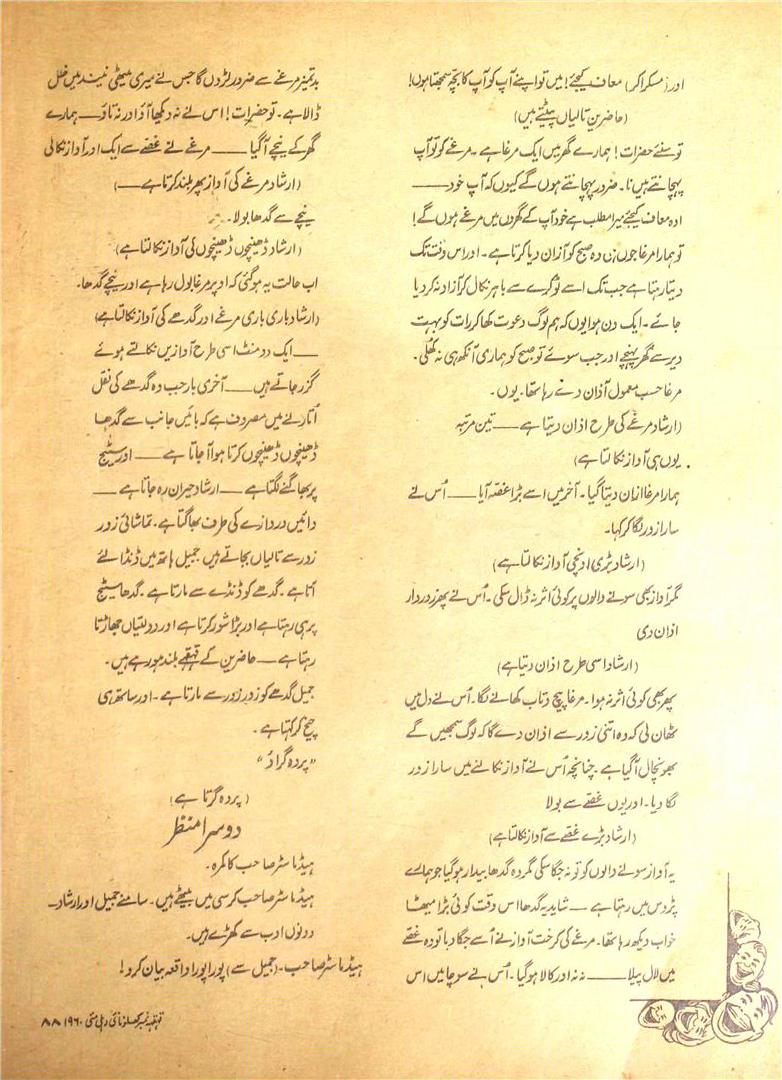 اور (مسکراکر) معاف کیجئے! میں تو اپنے آپ کو آپ کا بچّہ سمجھتا ہوں!
(حاضرین تالیاں پیٹتے ہیں)
تو سنئے حضرات! ہمارے گھر میں ایک مرغا ہے ۔ مرغے کو تو آپ
پہچانتے ہیں نا۔ ضرور پہچانتے ہوں گے کیوں کہ آپ خود ———
اوہ معاف کیجئے میرا مطلب ہے خود آپ کے گھروں میں مرغے ہوں گے!
تو ہمارا مرغا جوں ہی وہ صبح کو آذان دیا کرتا ہے ۔ اور اس وقت تک
دیتا رہتا ہے جب تک اسے ٹوکرے سے باہر نکال کر آزاد نہ کر دیا
جائے ۔ ایک دن ہوا یوں کہ ہم لوگ دعوت کھا کر رات کو بہت
دیر سے گھر پہنچے اور جب سوئے تو صبح کو ہماری آنکھ ہی نہ کُھلی۔
مرغا حسب معمول آذان دے رہا تھا۔ یوں۔
(ارشاد مرغے کی طرح اذان دیتا ہے —— تین مرتبہ
یوں ہی آواز نکالتا ہے)
ہمارا مرغا اذان دیتا گیا۔ آخر میں اسے بڑا غصّہ آیا —— اُس نے
سارا زور لگا کر کہا۔
(ارشاد بڑی اونچی آواز نکالتا ہے)
مگر آواز بھی سونے والوں پر کوئی اثر نہ ڈال سکی ۔ اُس نے پھر زور دار
اذان دی
(ارشاد اسی طرح اذان دیتا ہے)
پھر بھی کوئی اثر نہ ہوا۔ مرغا پیچ و تاب کھانے لگا۔ اُس نے دل میں
ٹھان لی کہ وہ اتنی زور سے اذان دے گا کہ لوگ سمجھیں گے
بھونچال آگیا ہے ۔ چنانچہ اُس نے آواز نکالنے میں سارا زور
لگا دیا۔ اور یوں غصّے سے بولا
(ارشاد بڑے غصّے سے آواز نکالتا ہے)
یہ آواز سونے والوں کو تو نہ جگا سکی مگر وہ گدھا بیدار ہو گیا جو ہمارے
پڑوس میں رہتا ہے —— شاید یہ گدھا اس وقت کوئی بڑا میٹھا
خواب دیکھ رہا تھا۔ مرغے کی کرخت آواز نے اُسے جگا دیا تو وہ غصّے
میں لال پیلا —— نہ نہ اور کالا ہو گیا۔ اُس نے سوچا میں اس
بدتمیز مرغے سے ضرور لڑوں گا جس نے میری میٹھی نیند میں خلل
ڈالا ہے ۔ تو حضرات! اس نے نہ دیکھا آؤ اور نہ تاؤ —— ہمارے
گھر کے نیچے آگیا —— مرغے نے غصّے سے ایک اور آواز نکالی
(ارشاد مرغے کی آواز پھر بلند کرتا ہے ——)
نیچے سے گدھا بولا۔
(ارشاد ڈھینچوں ڈھینچوں کی آواز نکالتا ہے)
اب حالت یہ ہو گئی کہ اوپر مرغا بول رہا ہے اور نیچے گدھا۔
(ارشاد باری باری مرغے اور گدھے کی آواز نکالتا ہے)
—— ایک دو منٹ اسی طرح آوازیں نکالتے ہوئے
گزر جاتے ہیں —— آخری بار جب وہ گدھے کی نقل
اُتارنے میں مصروف ہے کہ بائیں جانب سے گدھا
ڈھینچوں ڈھینچوں کرتا ہوا آ جاتا ہے —— اور سٹیج
پر بھاگنے لگتا ہے —— ارشاد حیران رہ جاتا ہے ——
دائیں دروازے کی طرف بھاگتا ہے ۔ تماشائی زور
زور سے تالیاں بجاتے ہیں۔ جمیل ہاتھ میں ڈنڈا لئے
آتا ہے ۔ گدھے کو ڈنڈے سے مارتا ہے ۔ گدھا سٹیج
پر ہی رہتا ہے اور بڑا شور کرتا ہے اور دولتیاں جھاڑتا
رہتا ہے —— حاضرین کے قہقہے بلند ہو رہے ہیں۔
جمیل گدھے کو زور زور سے مارتا ہے ۔ اور ساتھ ہی
چیخ کر کہتا ہے ۔
"پردہ گراؤ"
(پردہ گرتا ہے)
دوسرا منظر
ہیڈ ماسٹر صاحب کا کمرہ۔
ہیڈ ماسٹر صاحب کرسی میں بیٹھے ہیں۔ سامنے جمیل اور ارشاد ——
دونوں ادب سے کھڑے ہیں۔
ہیڈ ماسٹر صاحب۔ (جمیل سے) پورا پورا واقعہ بیان کرو!
قہقہہ نمبر کھلونا نئی دہلی مئی ۱۹۶۰ ۸۸